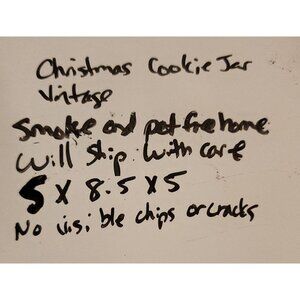 Christmas Cookie Jar
Vintage
Smoke and pet free home
Will Ship With care
5 X 8.5 X 5
No visible chips or cracks